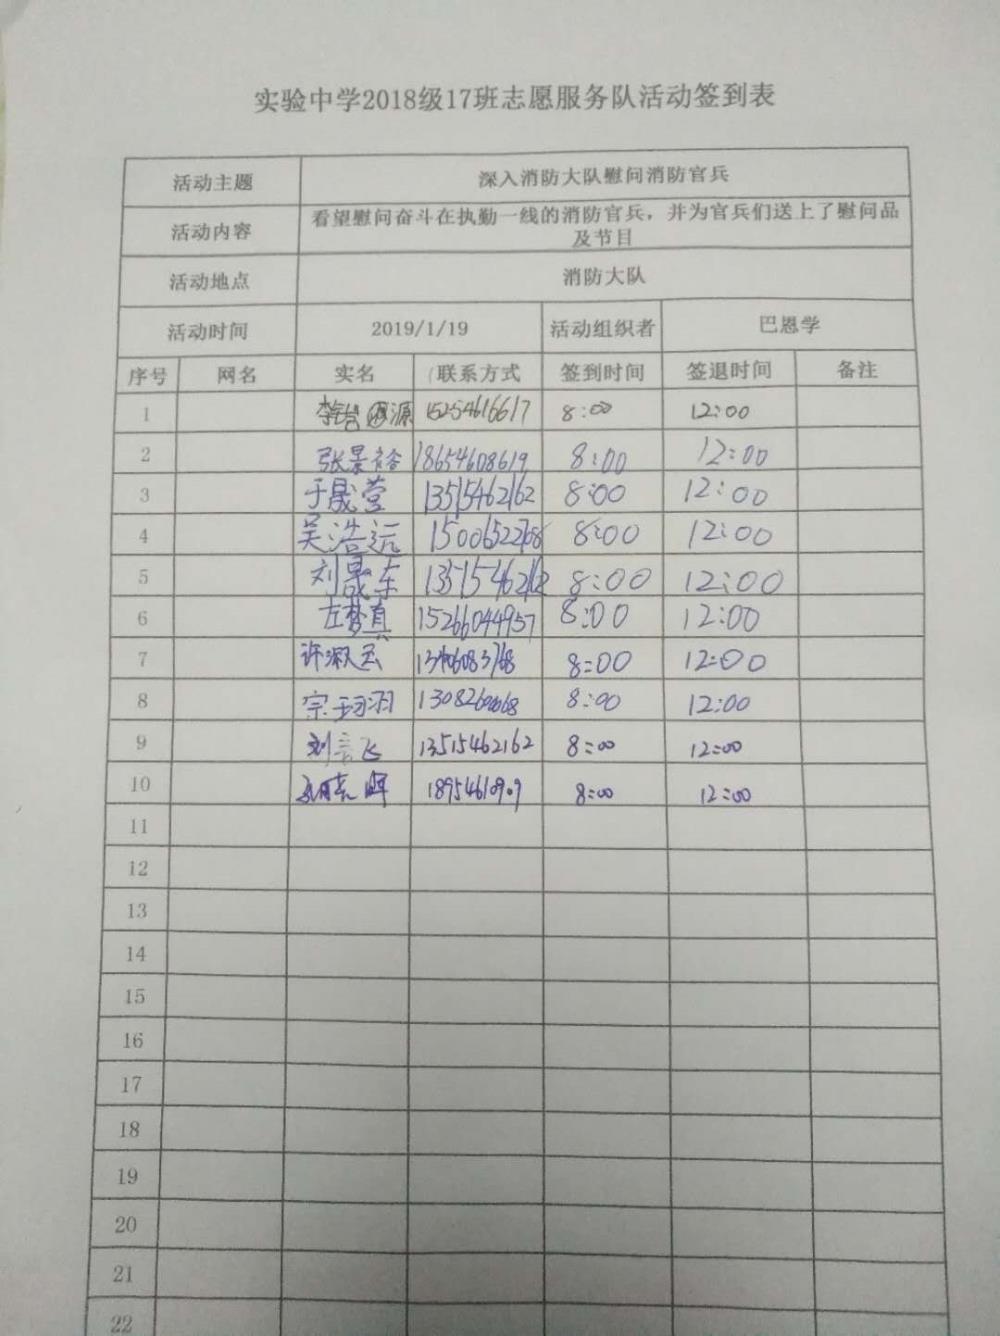 实验中学2018级17班志愿服务队活动签到表
活动主题 深入消防大队慰问消防官兵
活动内容 看望慰问奋斗在执勤一线的消防官兵，并为官兵们送上了慰问品
及节目
活动地点 消防大队
活动时间 2019/1/19 活动组织者 巴恩学
序号 网名 实名 联系方式 签到时间 签退时间 备注
1 源 15254616617 8:00 12:00
2 张景裕 18654608619 8:00 12:00
3 于晟莹 13515462162 8:00 12:00
4 吴浩远 8:00 12:00
5 刘晟东 13515462162 8:00 12:00
6 左梦真 15266044957 8:00 12:00
7 许淑玉 8:00 12:00
8 宗 8:00 12:00
9 刘言飞 13515462162 8:00 12:00
10 8:00 12:00
11
12
13
14
15
16
17
18
19
20
21
22